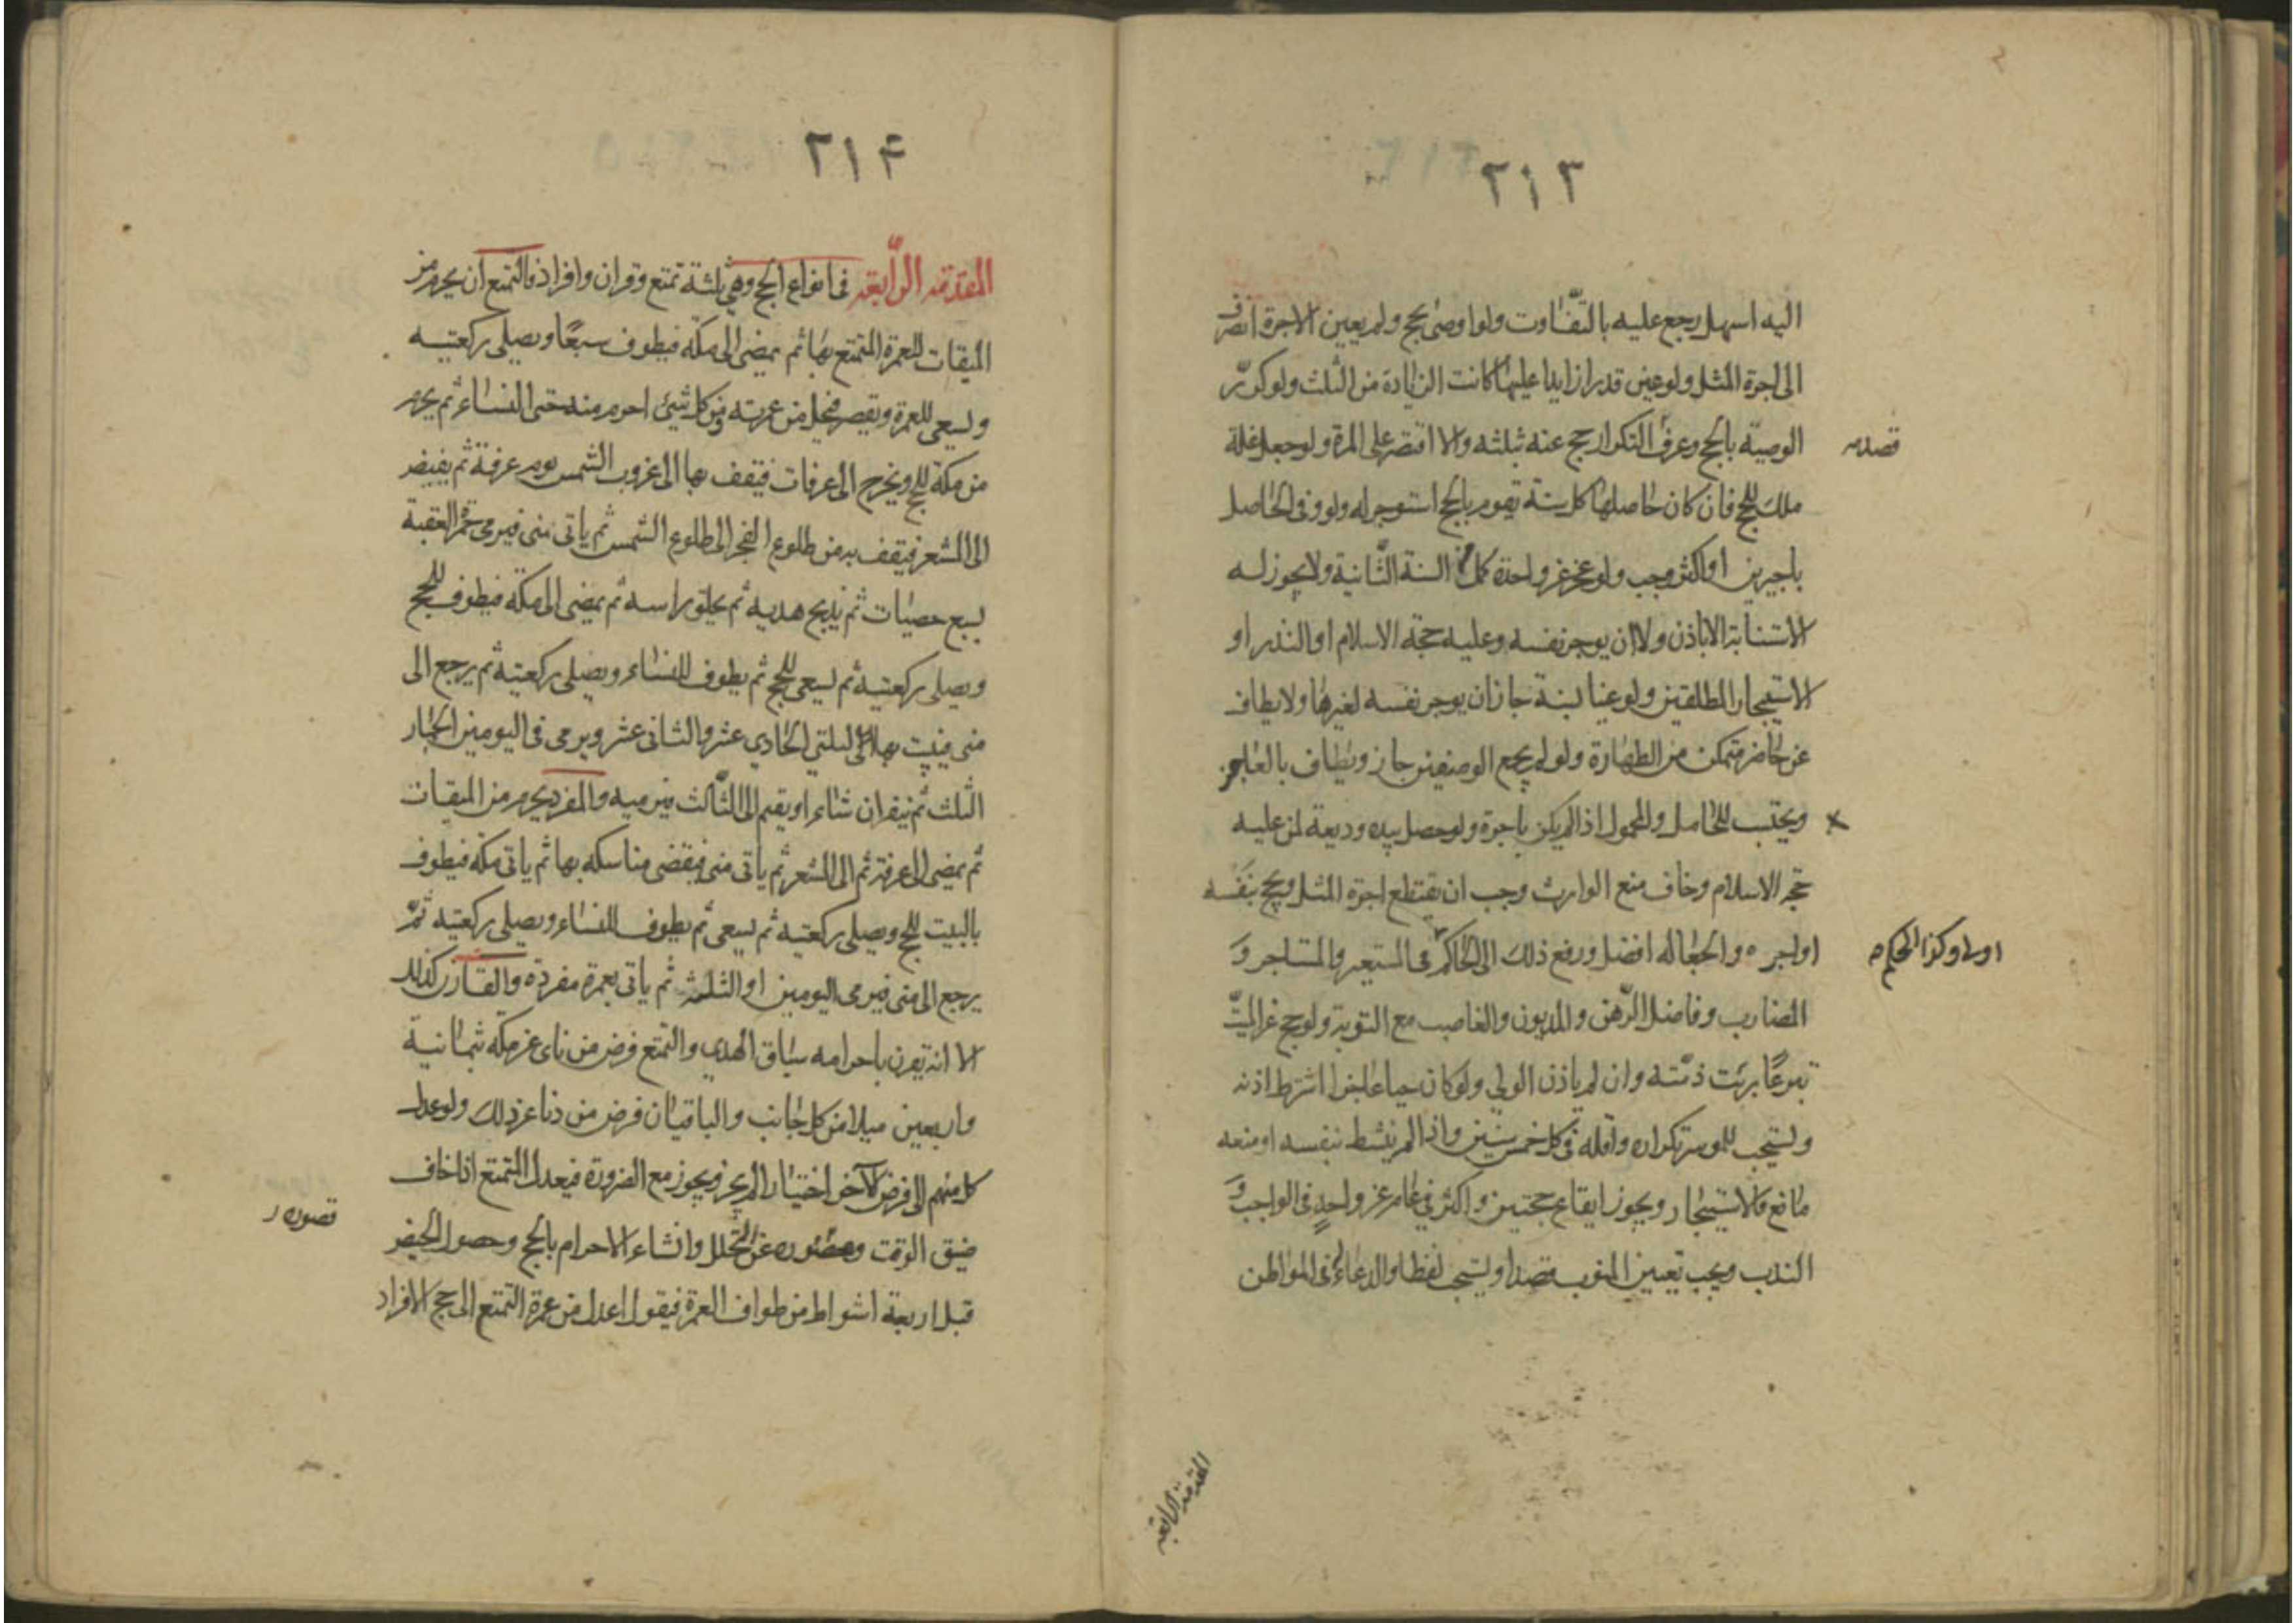 ٢١٣
اليه اسهل رجع عليه بالتفاوت ولو اوصى بحج ولم يعين الاجرة انصرف
الى اجرة المثل ولو عين قدرا زايدا عليها كانت الزيادة من الثلث ولو كرّر
الوصية بالحج وعرف التكرار حج عنه بثلثه والا اقتصر على المرة ولو جعل غلة
ملك للحج فان كان حاصلها كل سنة تقوم بالحج استوجر له ولو وفى الحاصل
باجيرين او اكثر وجب ولو عجز عن واحدة كمل من السنة الثانية ولا يجوز له
الاستنابة الا باذن ولا ان يوجر نفسه وعليه حجة الاسلام او النذر او
الاستيجار المطلقين ولو عينا لسنة جاز ان يوجر نفسه لغيرها ولا يطاف
عن حاضر متمكن من الطهارة ولو لم يجمع الوصفين جاز ويطاف بالعاجز
ويحتسب للحامل والمحمول اذا لم يكن باجرة ولو حصل بيده وديعة لمن عليه
حجة الاسلام وخاف منع الوارث وجب ان يقتطع اجرة المثل ويحج بنفسه
او يستاجر والجعالة افضل ورفع ذلك الى الحاكم في المستعير والمستاجر و
المضارب وفاضل الرهن والمديون والغاصب مع التوبة ولو حج عن الميّت
تبرعًا برئت ذمّته وان لم ياذن الولي ولو كان حيا عاجزا اشترط اذنه
ويستحب للموسر تكراره واقله في كل خمس سنين واذا لم ينشط بنفسه او منعه
مانع فالاستيجار ويجوز ايقاع حجتين واكثر في عام عن واحد في الواجب و
الندب ويجب تعيين المنوب قصدا ويستحب لفظا والدعاء له في المواطن
اولى وكذا الحكم
المقدمة الرابعة
٢١۴
المقدمة الرّابعة في انواع الحج وهي ثلثة تمتع وقران وافراد فالتمتع ان يحرم من
الميقات للعمرة المتمتع بها ثم يمضى الى مكّة فيطوف سبعًا ويصلى ركعتيه
ويسعى للعمرة ويقصر فيحل من عمرته ومن كل شئ احرم منه حتى النساء ثم يحرم
من مكة للحج ويخرج الى عرفات فيقف بها الى غروب الشمس يوم عرفة ثم يفيض
الى المشعر فيقف به من طلوع الفجر الى طلوع الشمس ثم ياتى منى فيرمى جمرة العقبة
بسبع حصيات ثم يذبح هديه ثم يحلق راسه ثم يمضى الى مكة فيطوف للحج
ويصلى ركعتيه ثم يسعى للحج ثم يطوف للنساء ويصلى ركعتيه ثم يرجع الى
منى فيبيت بها ليلتي الحادي عشر والثانى عشر ويرمى فى اليومين الجمار
الثلث ثم ينفر ان شاء او يقيم الى الثّالث فيرميه والمفرد يحرم من الميقات
ثم يمضى الى عرفة ثم الى المشعر ثم ياتى منى فيقضى مناسكه بها ثم ياتى مكة فيطوف
بالبيت للحج ويصلى ركعتيه ثم يسعى ثم يطوف للنساء ويصلى ركعتيه ثمّ
يرجع الى منى فيرمى اليومين او الثلثة ثم ياتى بعمرة مفردة والقارن كذلك
الا انه يقرن باحرامه سياق الهدي والتمتع فرض من ناى عن مكة بثمانية
واربعين ميلا من كل جانب والباقيان فرض من دنا عن ذلك ولو عدل
كل منهم الى فرض الآخر اختيارا لم يجز ويجوز مع الضرورة فيعدل المتمتع اذا خاف
ضيق الوقت وقصوره عن التحلل وانشاء الاحرام بالحج وحصول الحيض
قبل اربعة اشواط من طواف العمرة فيقول اعدل من عمرة التمتع الى حج الافراد
قصوره